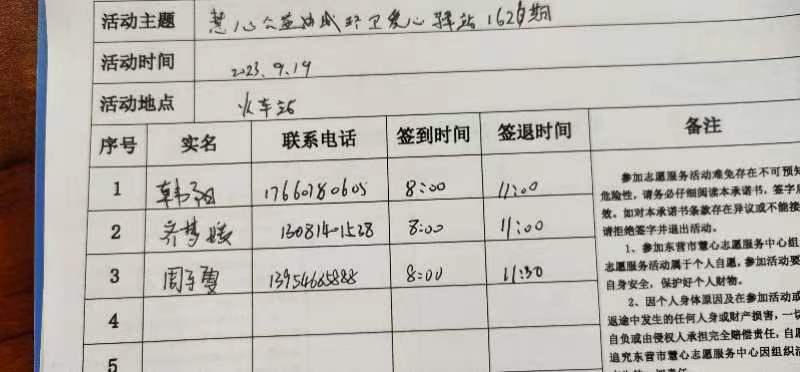 活动主题 慧心公益油城环卫爱心驿站162期
活动时间 2023.9.19
活动地点 火车站
序号 实名 联系电话 签到时间 签退时间 备注
1 17660780605 8:00 11:00
2 齐梦媛 13081401528 8:00 11:00
3 周子雯 13954665888 8:00 11:30
4
5
参加志愿服务活动难免存在不可预知
危险性，请务必仔细阅读本承诺书，签字后
效。如对本承诺书条款存在异议或不能接
请拒绝签字并退出活动。
1、参加东营市慧心志愿服务中心组
志愿服务活动属于个人自愿，参加活动要
自身安全，保护好个人财物。
2、因个人身体原因及在参加活动或
返途中发生的任何人身或财产损害，一切
自负或由侵权人承担完全赔偿责任，自愿
追究东营市慧心志愿服务中心因组织活